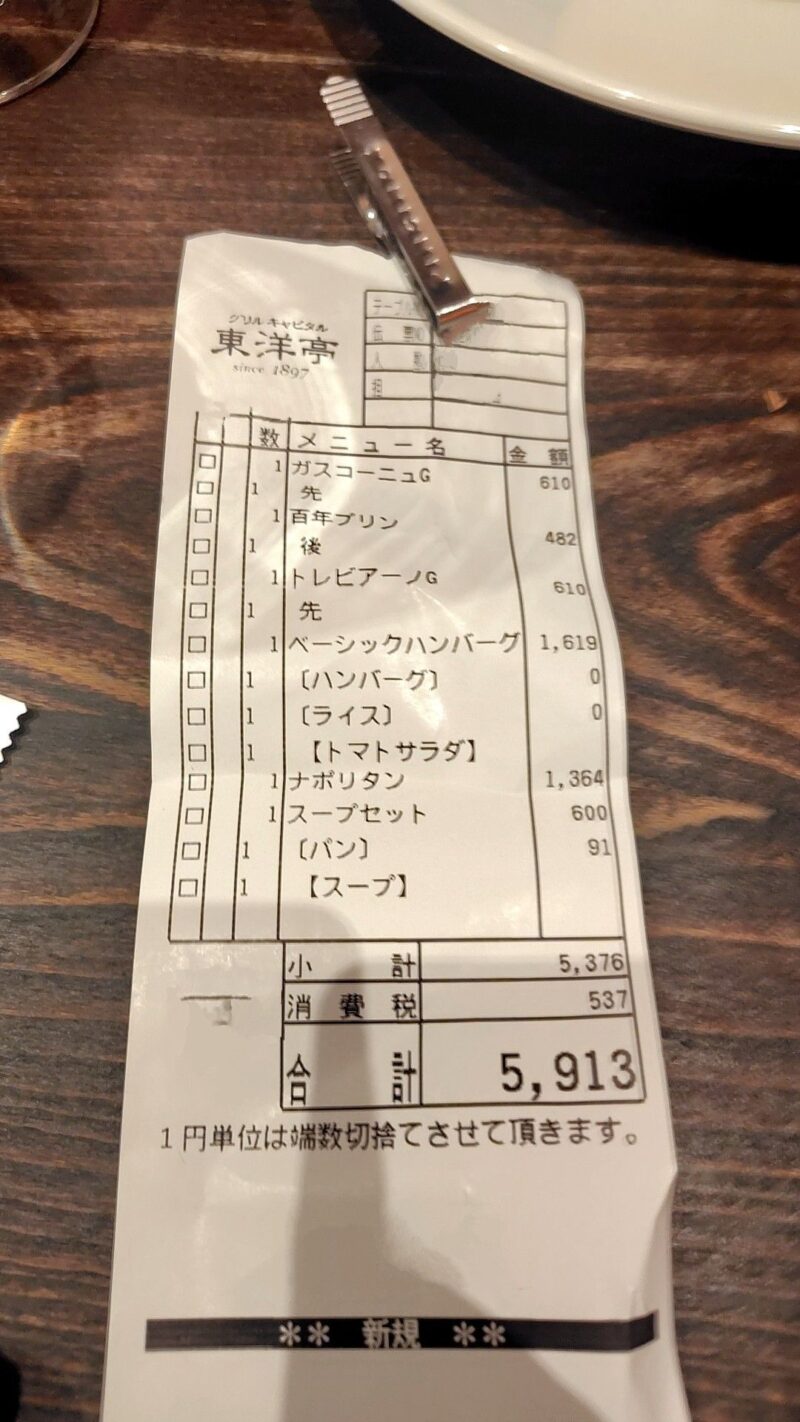 グリル キャピタル
東洋亭
since 1897
テーブル
伝票
人
担
数 メニュー名 金額
□ 1 ガスコーニュG 610
□ 1 先
□ 1 百年プリン 482
□ 1 後
□ 1 トレビアーノG 610
□ 1 先
□ 1 ベーシックハンバーグ 1,619
□ 1 〔ハンバーグ〕 0
□ 1 〔ライス〕 0
□ 1 【トマトサラダ】
□ 1 ナポリタン 1,364
□ 1 スープセット 600
□ 1 〔パン〕 91
□ 1 【スープ】
小計 5,376
消費税 537
合計 5,913
1円単位は端数切捨てさせて頂きます。
** 新規 **